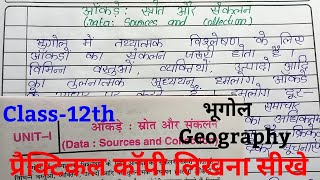 आंकड़े: स्रोत और संकलन
(Data: Sources and Collection)
भूगोल में तथ्यात्मक विश्लेषण के लिए
आंकड़ों का संकलन जरूरी होता है।
विभिन्न वस्तुओं, व्यक्तियों, उत्पादों आदि
का तुलनात्मक अध्ययन, हमलोग आंकड़े
Class-12th
भूगोल
Geography
UNIT-I
आंकड़े : स्रोत और संकलन
(Data : Sources and Collection)
प्रैक्टिकल कॉपी लिखना सीखे